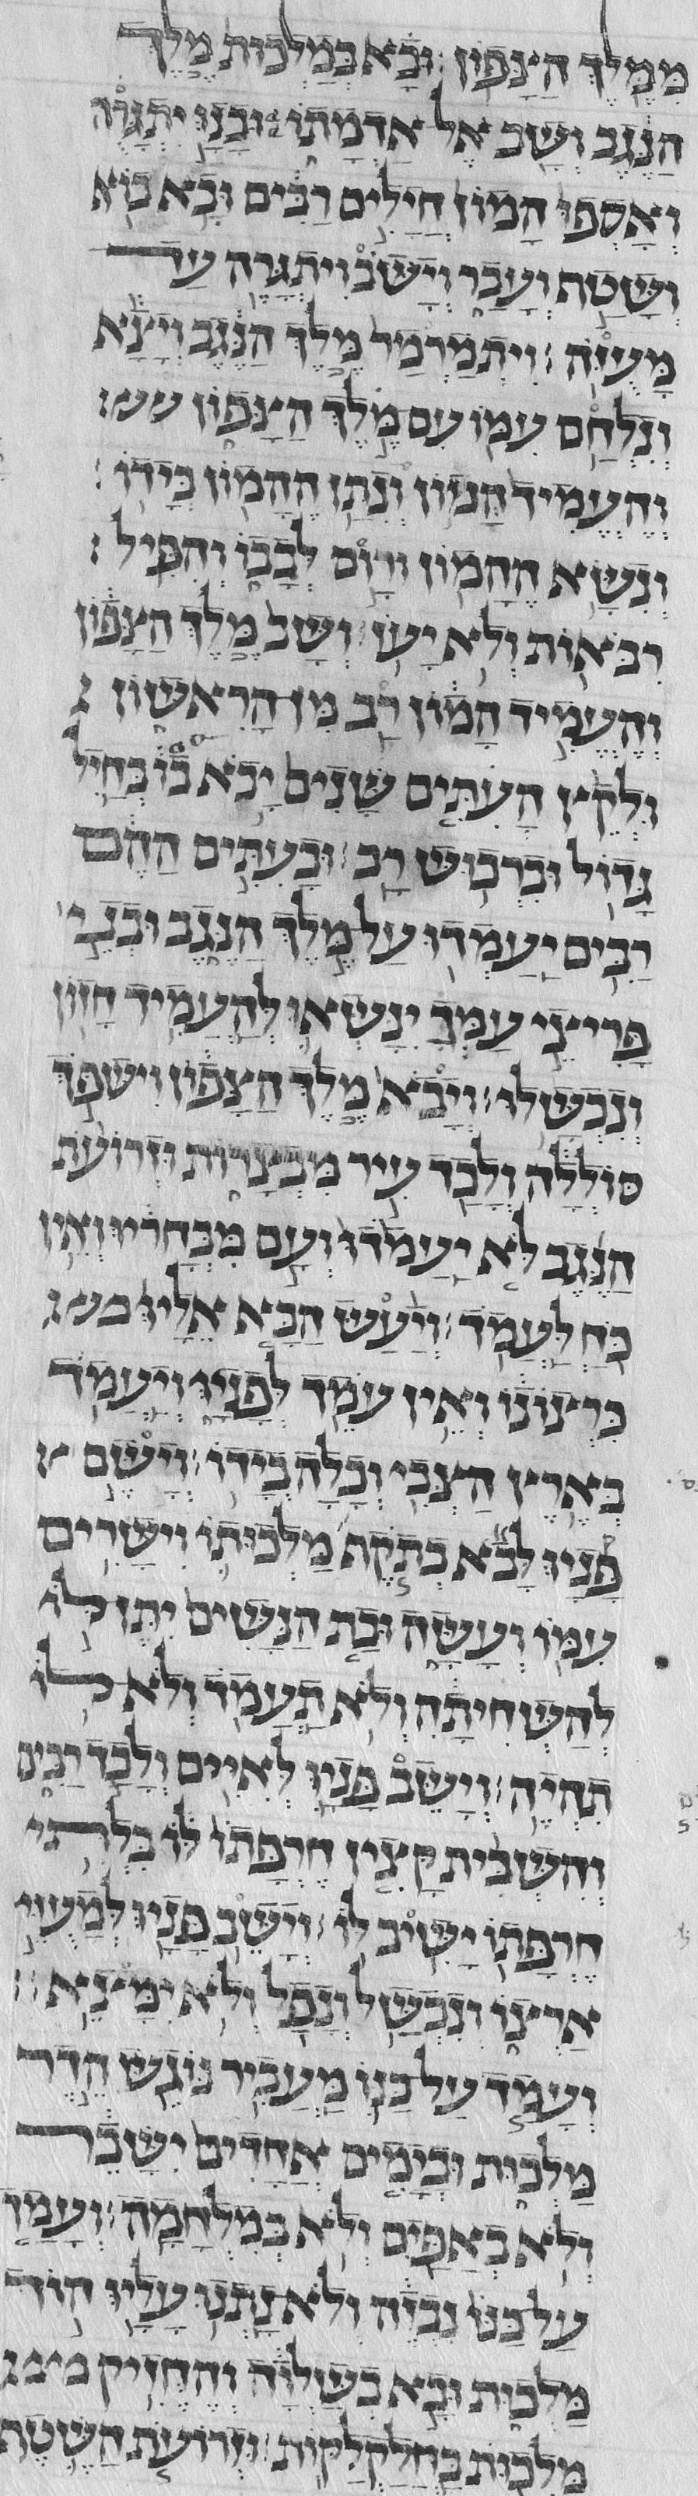 מִמֶּלֶךְ הַצָּפוֹן׃ וּבָא בְּמַלְכוּת מֶלֶךְ
הַנֶּגֶב וְשָׁב אֶל אַדְמָתוֹ׃ וּבָנָו יִתְגָּרוּ
וְאָסְפוּ הָמוֹן חֲיָלִים רַבִּים וּבָא בוֹא
וְשָׁטַף וְעָבָר וְיָשֹׁב וְיִתְגָּרֶה עַד
מָעֻזֹּה׃ וְיִתְמַרְמַר מֶלֶךְ הַנֶּגֶב וְיָצָא
וְנִלְחַם עִמּוֹ עִם מֶלֶךְ הַצָּפוֹן
וְהֶעֱמִיד הָמוֹן וְנִתַּן הֶהָמוֹן בְּיָדוֹ׃
וְנִשָּׂא הֶהָמוֹן וְרוּם לְבָבוֹ וְהִפִּיל
רִבֹּאוֹת וְלֹא יָעוֹז׃ וְשָׁב מֶלֶךְ הַצָּפוֹן
וְהֶעֱמִיד הָמוֹן רַב מִן הָרִאשׁוֹן
וּלְקֵץ הָעִתִּים שָׁנִים יָבֹא בוֹא בְּחַיִל
גָּדוֹל וּבִרְכוּשׁ רָב׃ וּבָעִתִּים הָהֵם
רַבִּים יַעַמְדוּ עַל מֶלֶךְ הַנֶּגֶב וּבְנֵי
פָּרִיצֵי עַמְּךָ יִנַּשְּׂאוּ לְהַעֲמִיד חָזוֹן
וְנִכְשָׁלוּ׃ וְיָבֹא מֶלֶךְ הַצָּפוֹן וְיִשְׁפֹּךְ
סוֹלְלָה וְלָכַד עִיר מִבְצָרוֹת וּזְרוֹעֹת
הַנֶּגֶב לֹא יַעֲמֹדוּ וְעַם מִבְחָרָיו וְאֵין
כֹּחַ לַעֲמֹד׃ וְיַעַשׂ הַבָּא אֵלָיו
כִּרְצוֹנוֹ וְאֵין עֹמֵד לְפָנָיו וְיַעֲמֹד
בְּאֶרֶץ הַצְּבִי וְכָלָה בְיָדוֹ׃ וְיָשֵׂם
פָּנָיו לָבֹא בְּתֹקֶף מַלְכוּתוֹ וִישָׁרִים
עִמּוֹ וְעָשָׂה וּבַת הַנָּשִׁים יִתֶּן לוֹ
לְהַשְׁחִיתָהּ וְלֹא תַעֲמֹד וְלֹא לוֹ
תִהְיֶה׃ וְיָשֵׁב פָּנָיו לְאִיִּים וְלָכַד רַבִּים
וְהִשְׁבִּית קָצִין חֶרְפָּתוֹ לוֹ בִּלְתִּי
חֶרְפָּתוֹ יָשִׁיב לוֹ׃ וְיָשֵׁב פָּנָיו לְמָעוּזֵּי
אַרְצוֹ וְנִכְשַׁל וְנָפַל וְלֹא יִמָּצֵא׃
וְעָמַד עַל כַּנּוֹ מַעֲבִיר נוֹגֵשׂ הֶדֶר
מַלְכוּת וּבְיָמִים אֲחָדִים יִשָּׁבֵר
וְלֹא בְאַפַּיִם וְלֹא בְמִלְחָמָה׃ וְעָמַד
עַל כַּנּוֹ נִבְזֶה וְלֹא נָתְנוּ עָלָיו הוֹד
מַלְכוּת וּבָא בְשַׁלְוָה וְהֶחֱזִיק
מַלְכוּת בַּחֲלַקְלַקּוֹת׃ וּזְרוֹעֹת הַשֶּׁטֶף